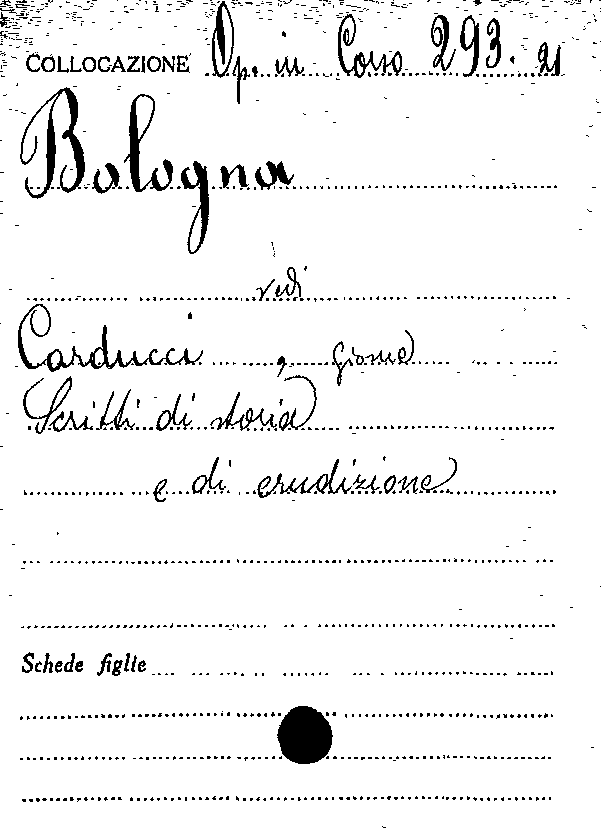 COLLOCAZIONE Op. in Corso 293. 21
Bologna
vedi
Carducci , Giosue
Scritti di storia
e di erudizione
Schede figlie